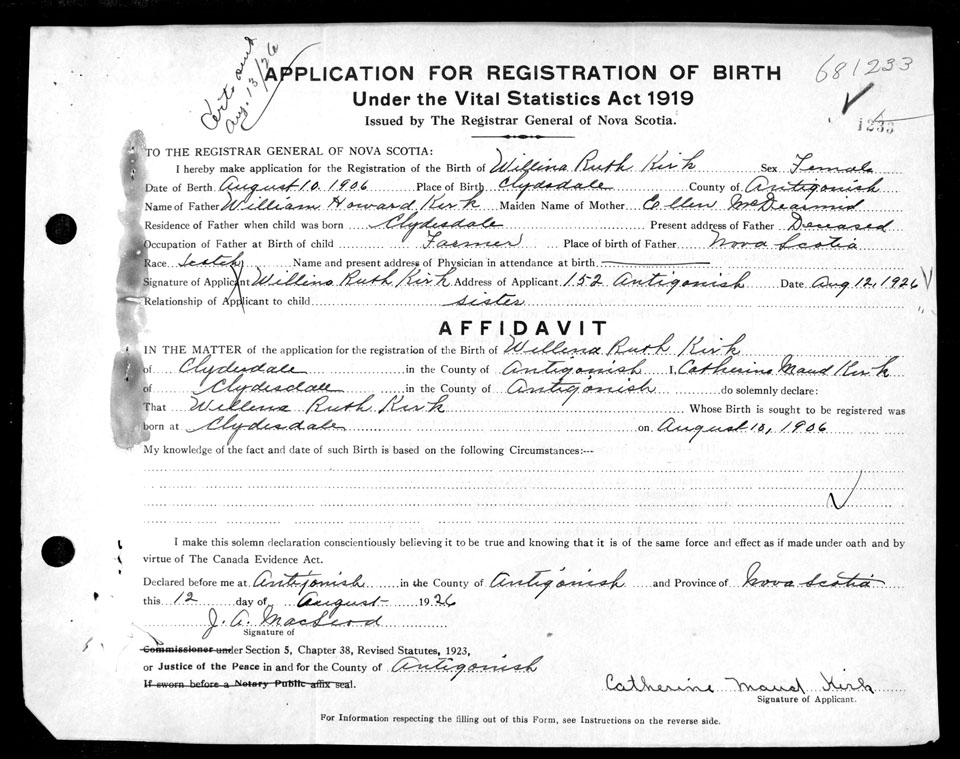 Certs sent
Aug. 13/26
681233
1233
APPLICATION FOR REGISTRATION OF BIRTH
Under the Vital Statistics Act 1919
Issued by The Registrar General of Nova Scotia.
TO THE REGISTRAR GENERAL OF NOVA SCOTIA:
I hereby make application for the Registration of the Birth of Willina Ruth Kirk Sex Female
Date of Berth August 10. 1906 Place of Birth Clydsdale County of Antigonish
Name of Father William Howard Kirk Maiden Name of Mother Ellen McDearmid
Residence of Father when child was born Clydesdale Present address of Father Deceased
Occupation of Father at Birth of child Farmer Place of birth of Father Nova Scotia
Race Scotch Name and present address of Physician in attendance at birth
Signature of Applicant Willina Ruth Kirk Address of Applicant 152 Antigonish Date Aug 12, 1926
Relationship of Applicant to child sister
AFFIDAVIT
IN THE MATTER of the application for the registration of the Birth of Willena Ruth Kirk
of Clydesdale in the County of Antigonish I, Catherine Maud Kirk
of Clydesdale in the County of Antigonish do solemnly declare:
That Willena Ruth Kirk Whose Birth is sought to be registered was
born at Clydesdale on August 10, 1906
My knowledge of the fact and date of such Birth is based on the following Circumstances:--
I make this solemn declaration conscientiously believing it to be true and knowing that it is of the same force and effect as if made under oath and by
virtue of The Canada Evidence Act.
Declared before me at Antigonish in the County of Antigonish and Province of Nova Scotia
this 12 day of August 1926
J. A. MacLeod
Signature of
Commissioner under Section 5, Chapter 38, Revised Statutes, 1923,
or Justice of the Peace in and for the County of Antigonish
If sworn before a Notary Public affix seal.
Catherine Maud Kirk
Signature of Applicant.
For Information respecting the filling out of this Form, see Instructions on the reverse side.